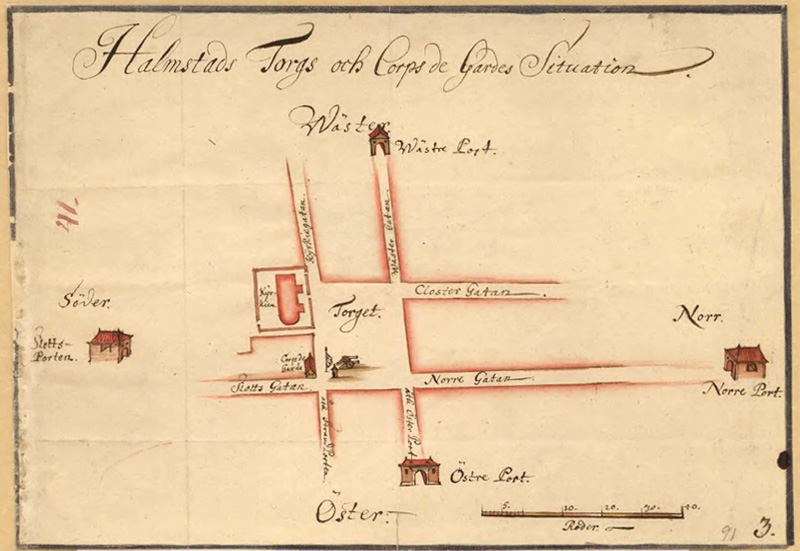 Halmstads Torgs och Corps de Gardes Situation.
Wäster.
Wästre Port.
Kyrkiogatan.
Wäster Gatan
Closter Gatan
Kyr-
kian
Torget.
Söder.
Slotts-
Porten.
Norr.
Corps de
Garde
Slotts Gatan
Norre Gatan
Norre Port.
åth Strand Porten
åth Östre Port
Östre Port.
Öster.
5. 10. 20. 30. 40.
Roder.
91 3.